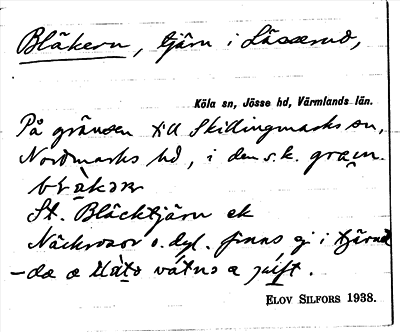 Bläkern, tjärn i Lässerud,
Köla sn, Jösse hd, Värmlands län.
På gränsen till Skillingmarks sn,
Nordmarks hd, i den s.k. grain.
bläkən
St. Bläcktjärn ek
Näckrosor o. dyl. finns ej i tjärnet
– dæ æ watnə a
ELOV SILFORS 1938.